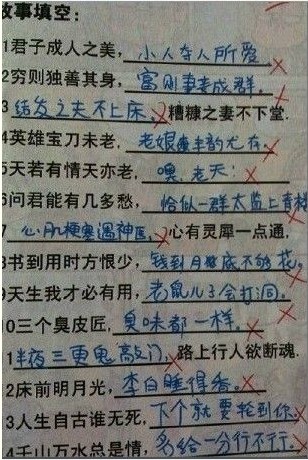 故事填空:
1君子成人之美,小人夺人所爱
2穷则独善其身,富则妻妾成群.
3结发之夫不上床,糟糠之妻不下堂.
4英雄宝刀未老,老娘丰韵尤存.
5天若有情天亦老,噢,老天:
6问君能有几多愁,恰似一群太监上青楼
7心肌梗塞遇神医,心有灵犀一点通,
8书到用时方恨少,钱到月底不够花.
9天生我才必有用,老鼠儿子会打洞.
0三个臭皮匠,臭味都一样.
1半夜三更鬼敲门,路上行人欲断魂.
2床前明月光,李白睡得香.
3人生自古谁无死,下个就要轮到你.
4千山万水总是情,多给一分行不行.